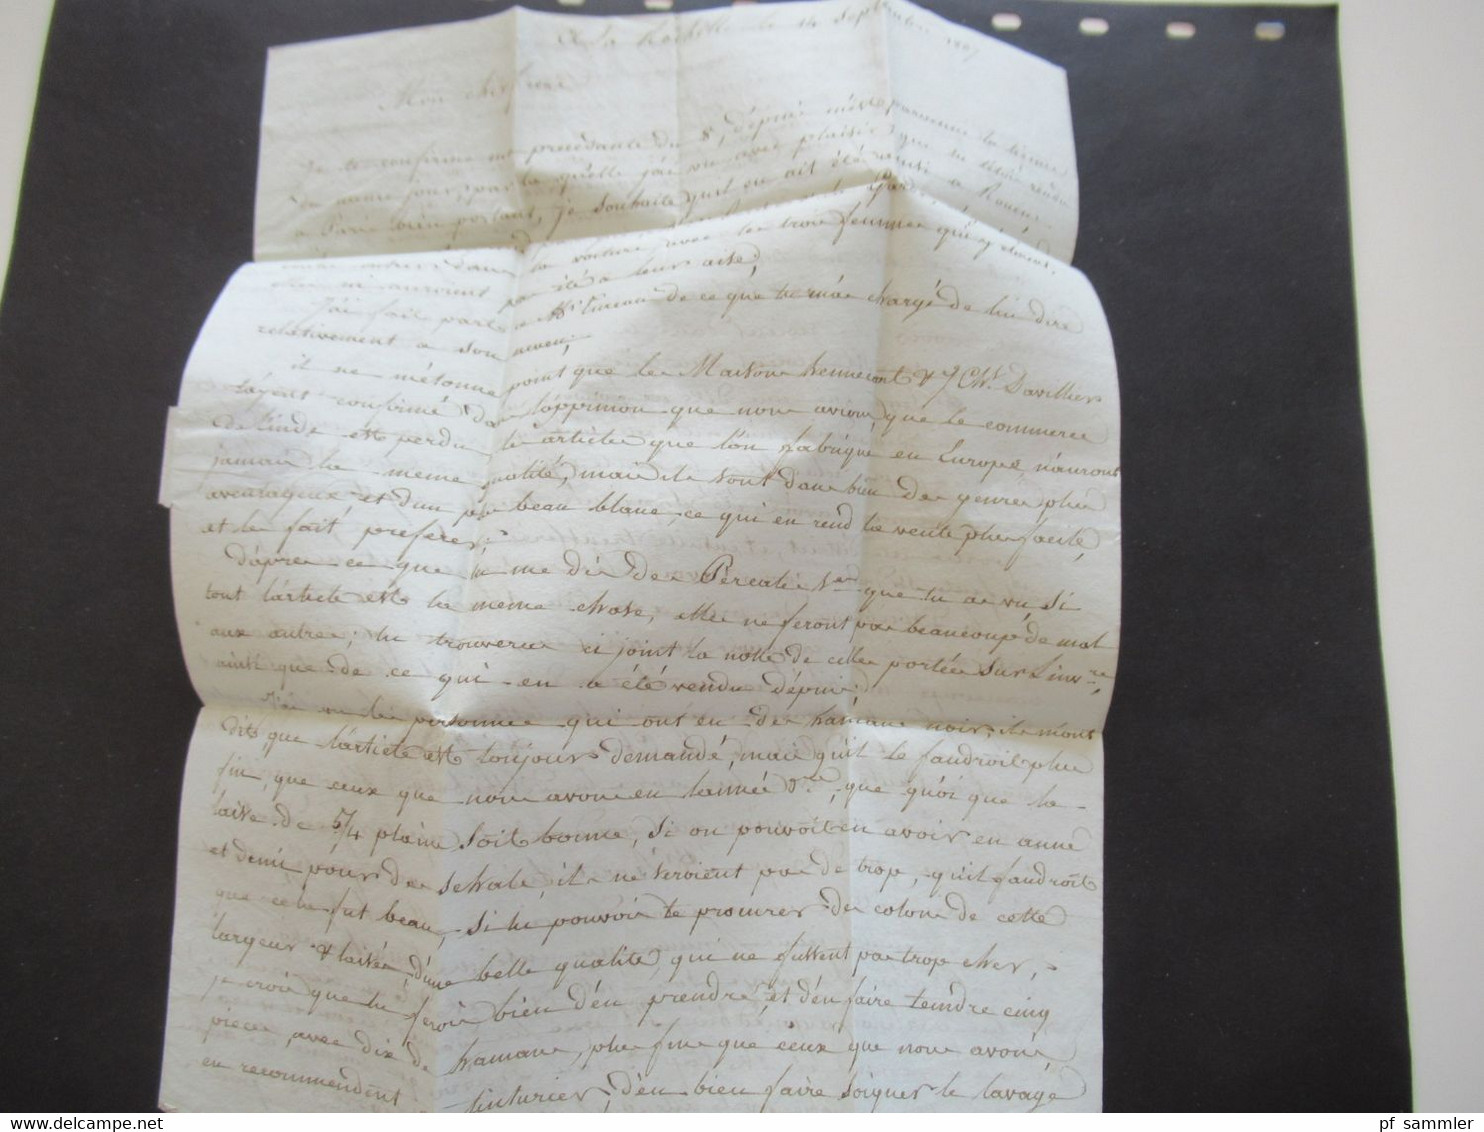 A la Rochelle le 14 Septembre 1807
Mon cher frere
Je te confirme ma precedante du 8, dépuis m'est parvenue la tienne
du meme jour, par la qu'elle j'ai vu avec plaisir que tu étois rendu
a Paris bien portant, je souhaite qu'il en ait été ainsi a Rouen
la voiture avec les trois femmes qui y étoient,
n'auroient pas été a leur aise,
J'ai fait part a Mr de ce que tu m'as chargé de lui dire
relativement a son neveu;
il ne m'étonne point que les Maison hennecart & J Ch. Davilliers
t'ayent confirmé dans l'oppinion que nous avions, que le commerce
de l'inde est perdu, les articles que l'on fabrique en Europe, n'auront
jamais la meme qualité, mais ils sont dans bien des genres plus
aventageux et d'un plus beau blanc, ce qui en rend la vente plus facile,
et les fait preferer;
D'apres ce que tu me dis des Percales que tu as vu, si
tout l'article est la meme chose, elles ne feront pas beaucoup de mal
aux autres; tu trouveras ci joint la note de celles portées sur L'invre,
ainsi que de ce qui en a été vendu dépuis;
J'ai vu les personnes qui ont eu des hamans noirs, ils m'ont
dit que l'article est toujours demandé, mais qu'il le faudroit plus
fin, que ceux que nous avons en l'année dre, que quoi que la
laise de 5/4 pleine soit bonne, si on pouvoit en avoir en aune
et demi pour des schals, ils ne seroient pas de trop, qu'il faudroit
que cela fut beau, si tu pouvois te procurer des cotons de cette
largeur & laises, d'une belle qualité, qui ne fussent pas trop cher,
je crois que tu ferois bien d'en prendre, et d'en faire teindre cinq
pieces, avec dix de hamans, plus fins que ceux que nous avons,
en recommendent teinturier, d'en bien faire soigner le lavage